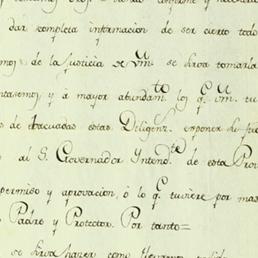 dar completa informacion de ser cierto todo
de la justicia de Vm. se sirva tomarla
y a mayor abundam.to los q.e Vm. tu
de evacuadas estas Diligen.s exponer su
al S. Governador Intend.te de esta Prov
permiso y aprovacion, ó lo q.e tuviere por mas
Padre y Protector. Por tanto=
se sirva hacer como llevamos